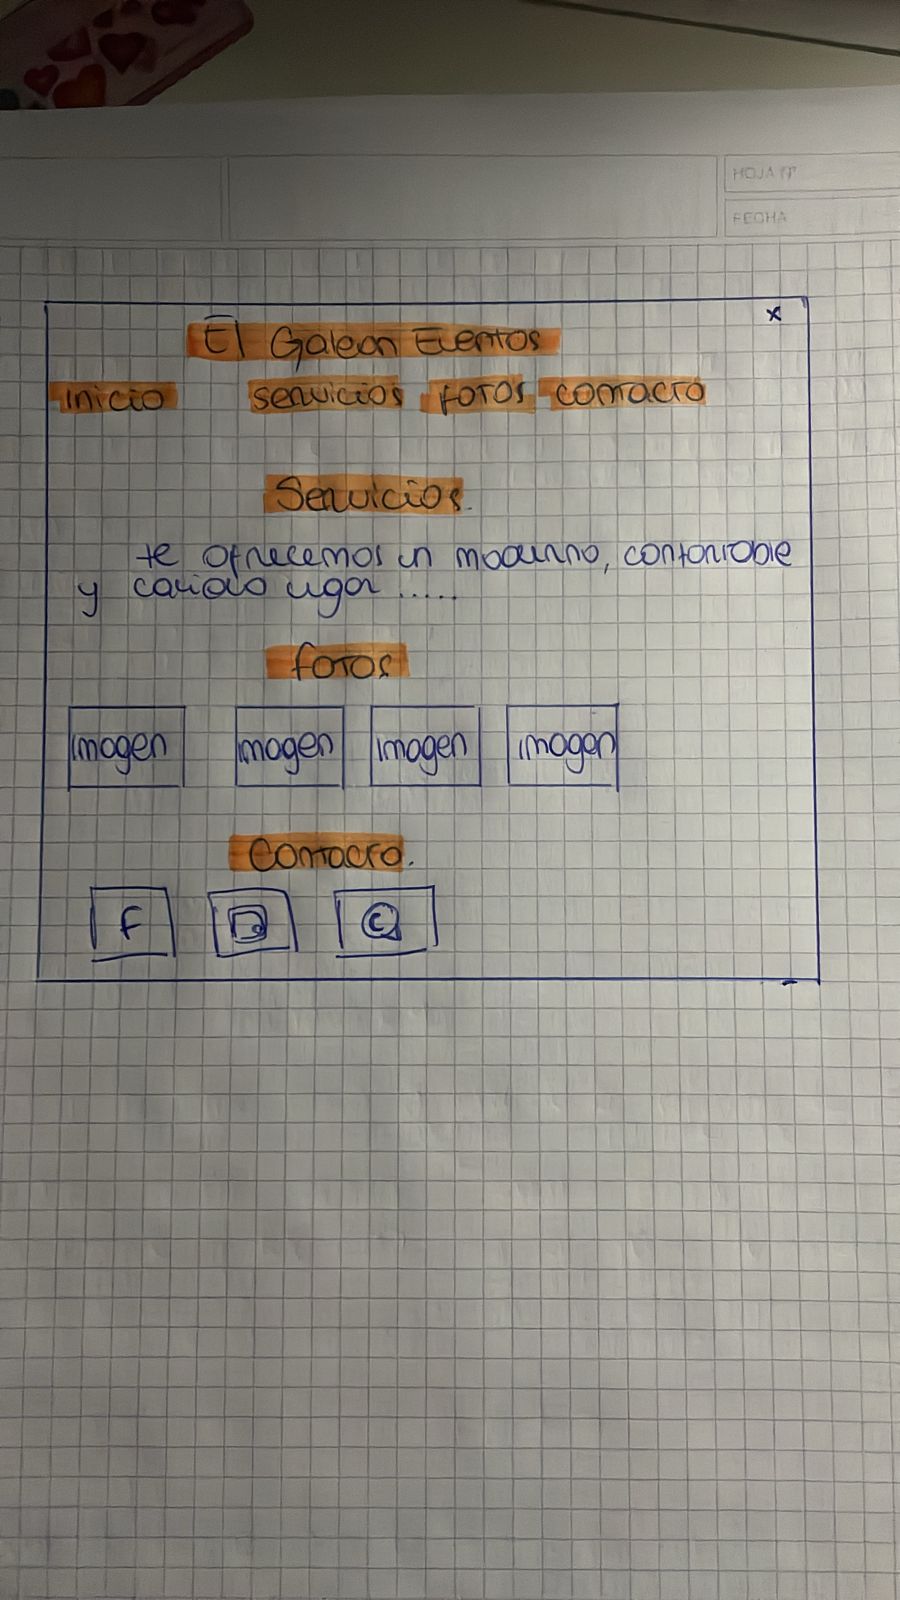 HOJA Nº
FECHA
x
El Galeon Eventos
inicio servicios fotos contacto
Servicios.
te ofrecemos un moderno, confortable
y calido lugar .....
fotos
imagen imagen imagen imagen
Contacto.
F